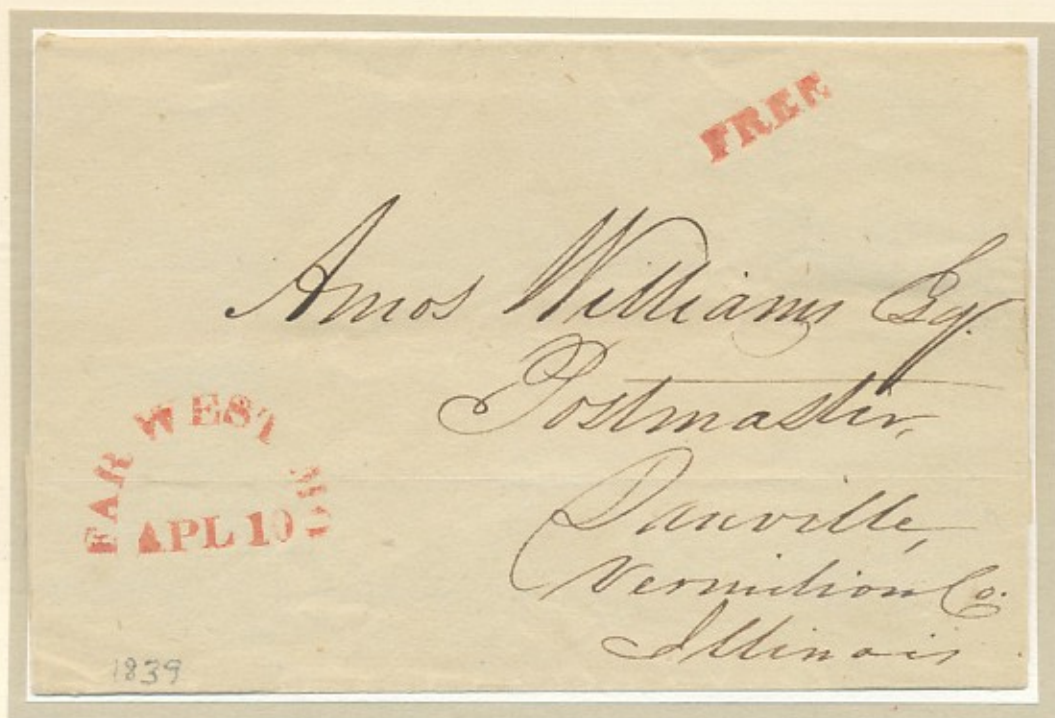 FREE
Amos Williams Esq.
Postmaster,
Danville,
Vermilion Co.
Illinois
FAR WEST Mo
APL 10
1839